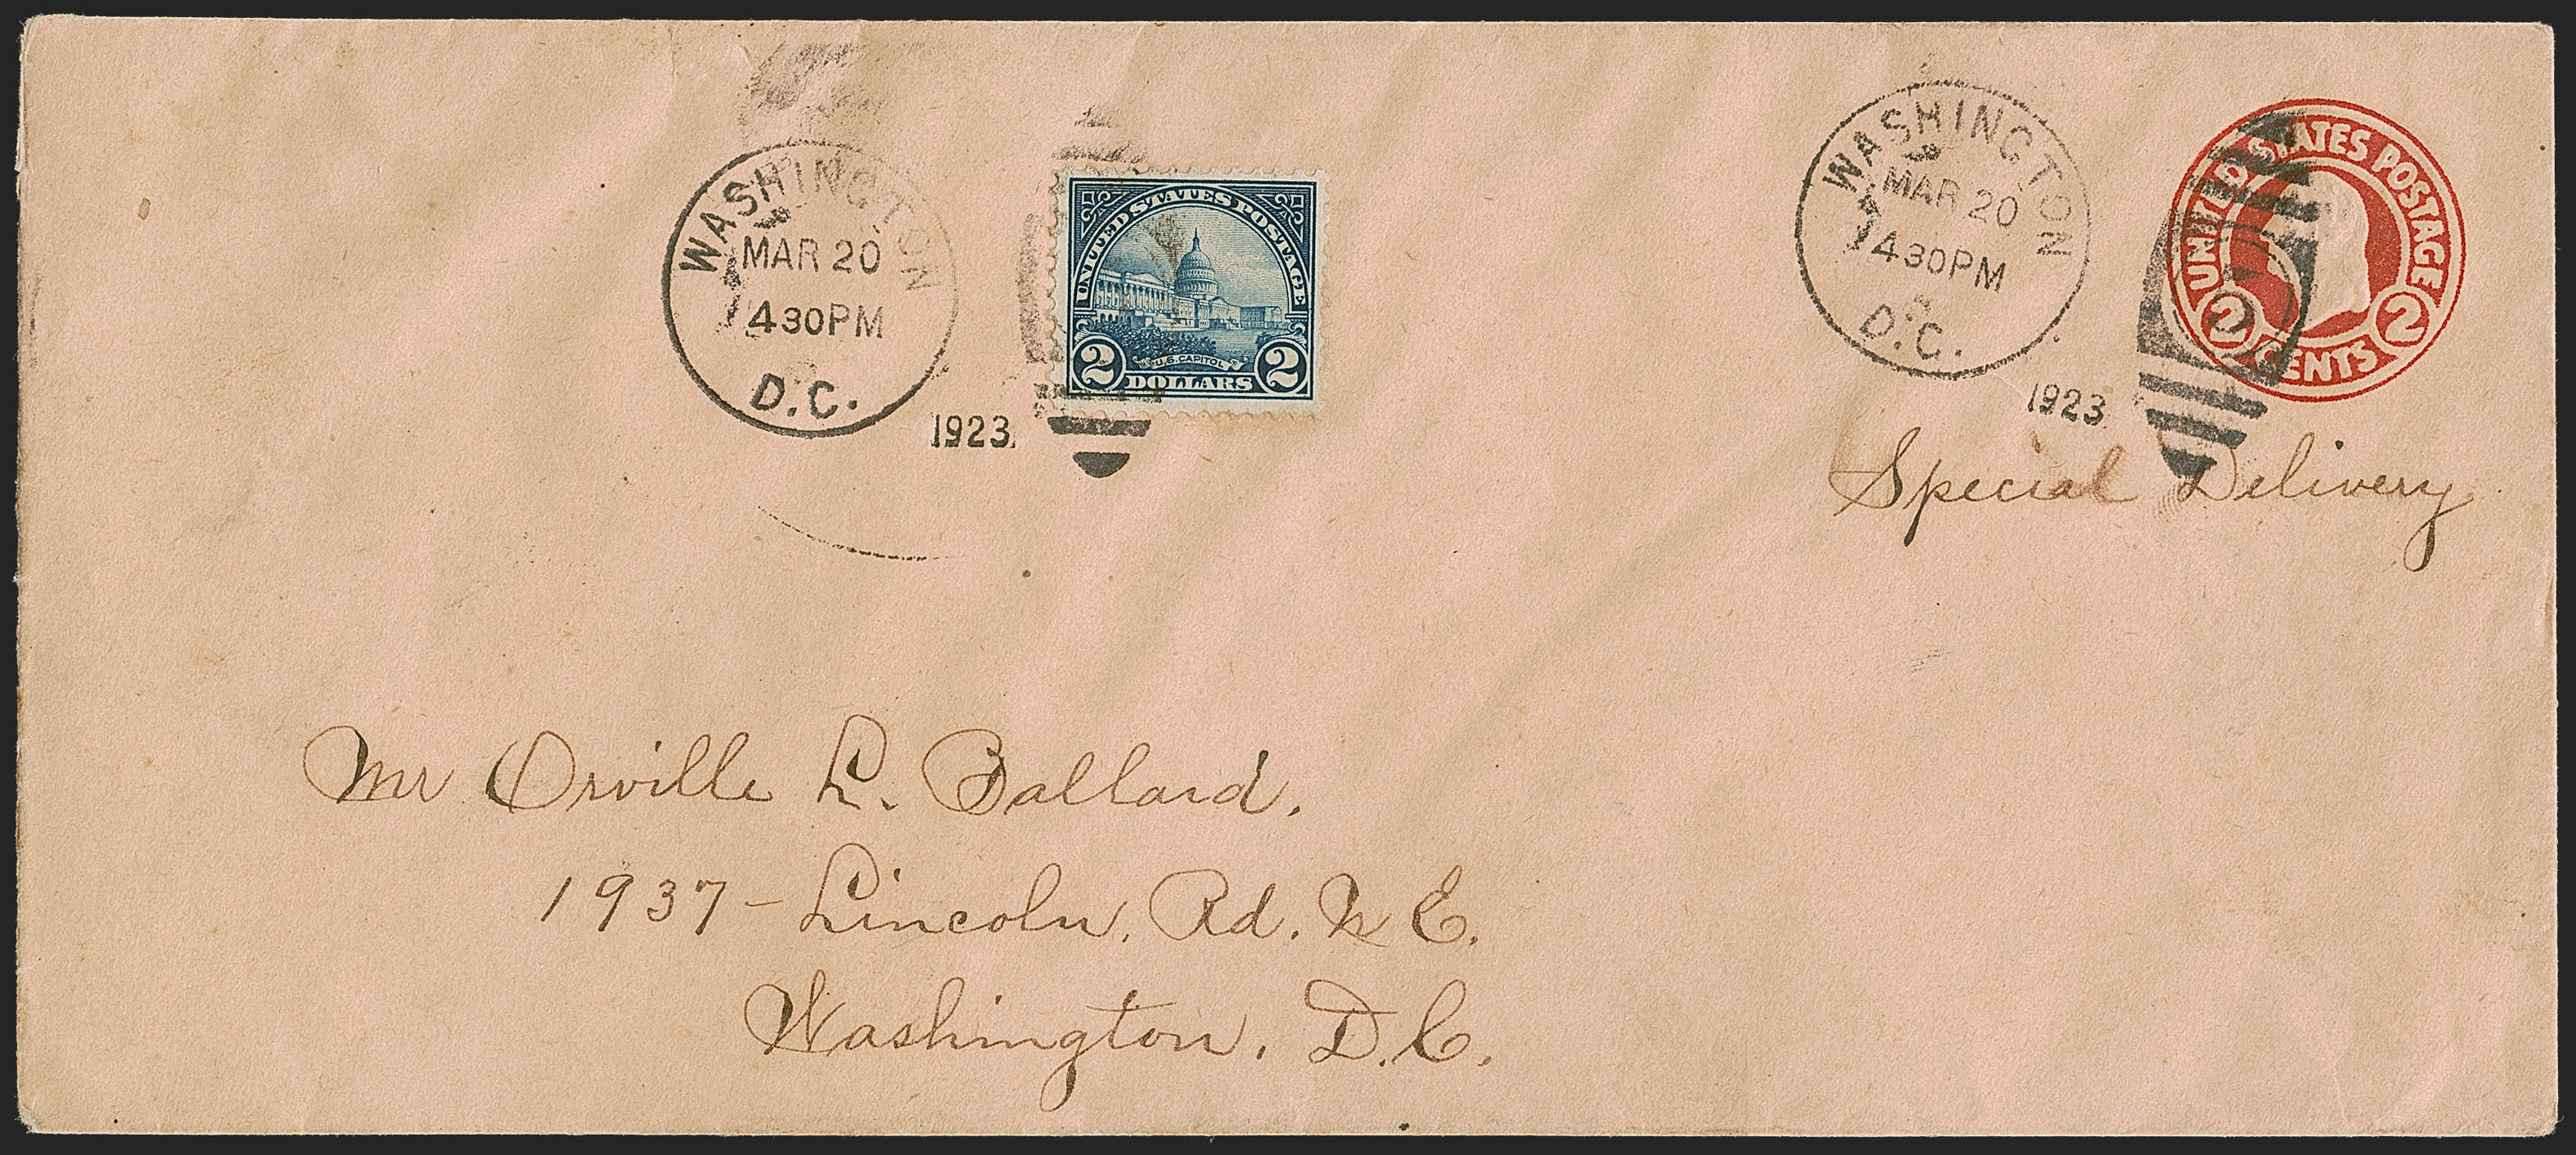 WASHINGTON
MAR 20
430PM
D.C.
1923
UNITED STATES POSTAGE
U.S. CAPITOL
2 DOLLARS 2
WASHINGTON
MAR 20
430PM
D.C.
1923
UNITED STATES POSTAGE
2 CENTS 2
Special Delivery
Mr Orville L. Ballard.
1937 - Lincoln. Rd. N E.
Washington. D.C.